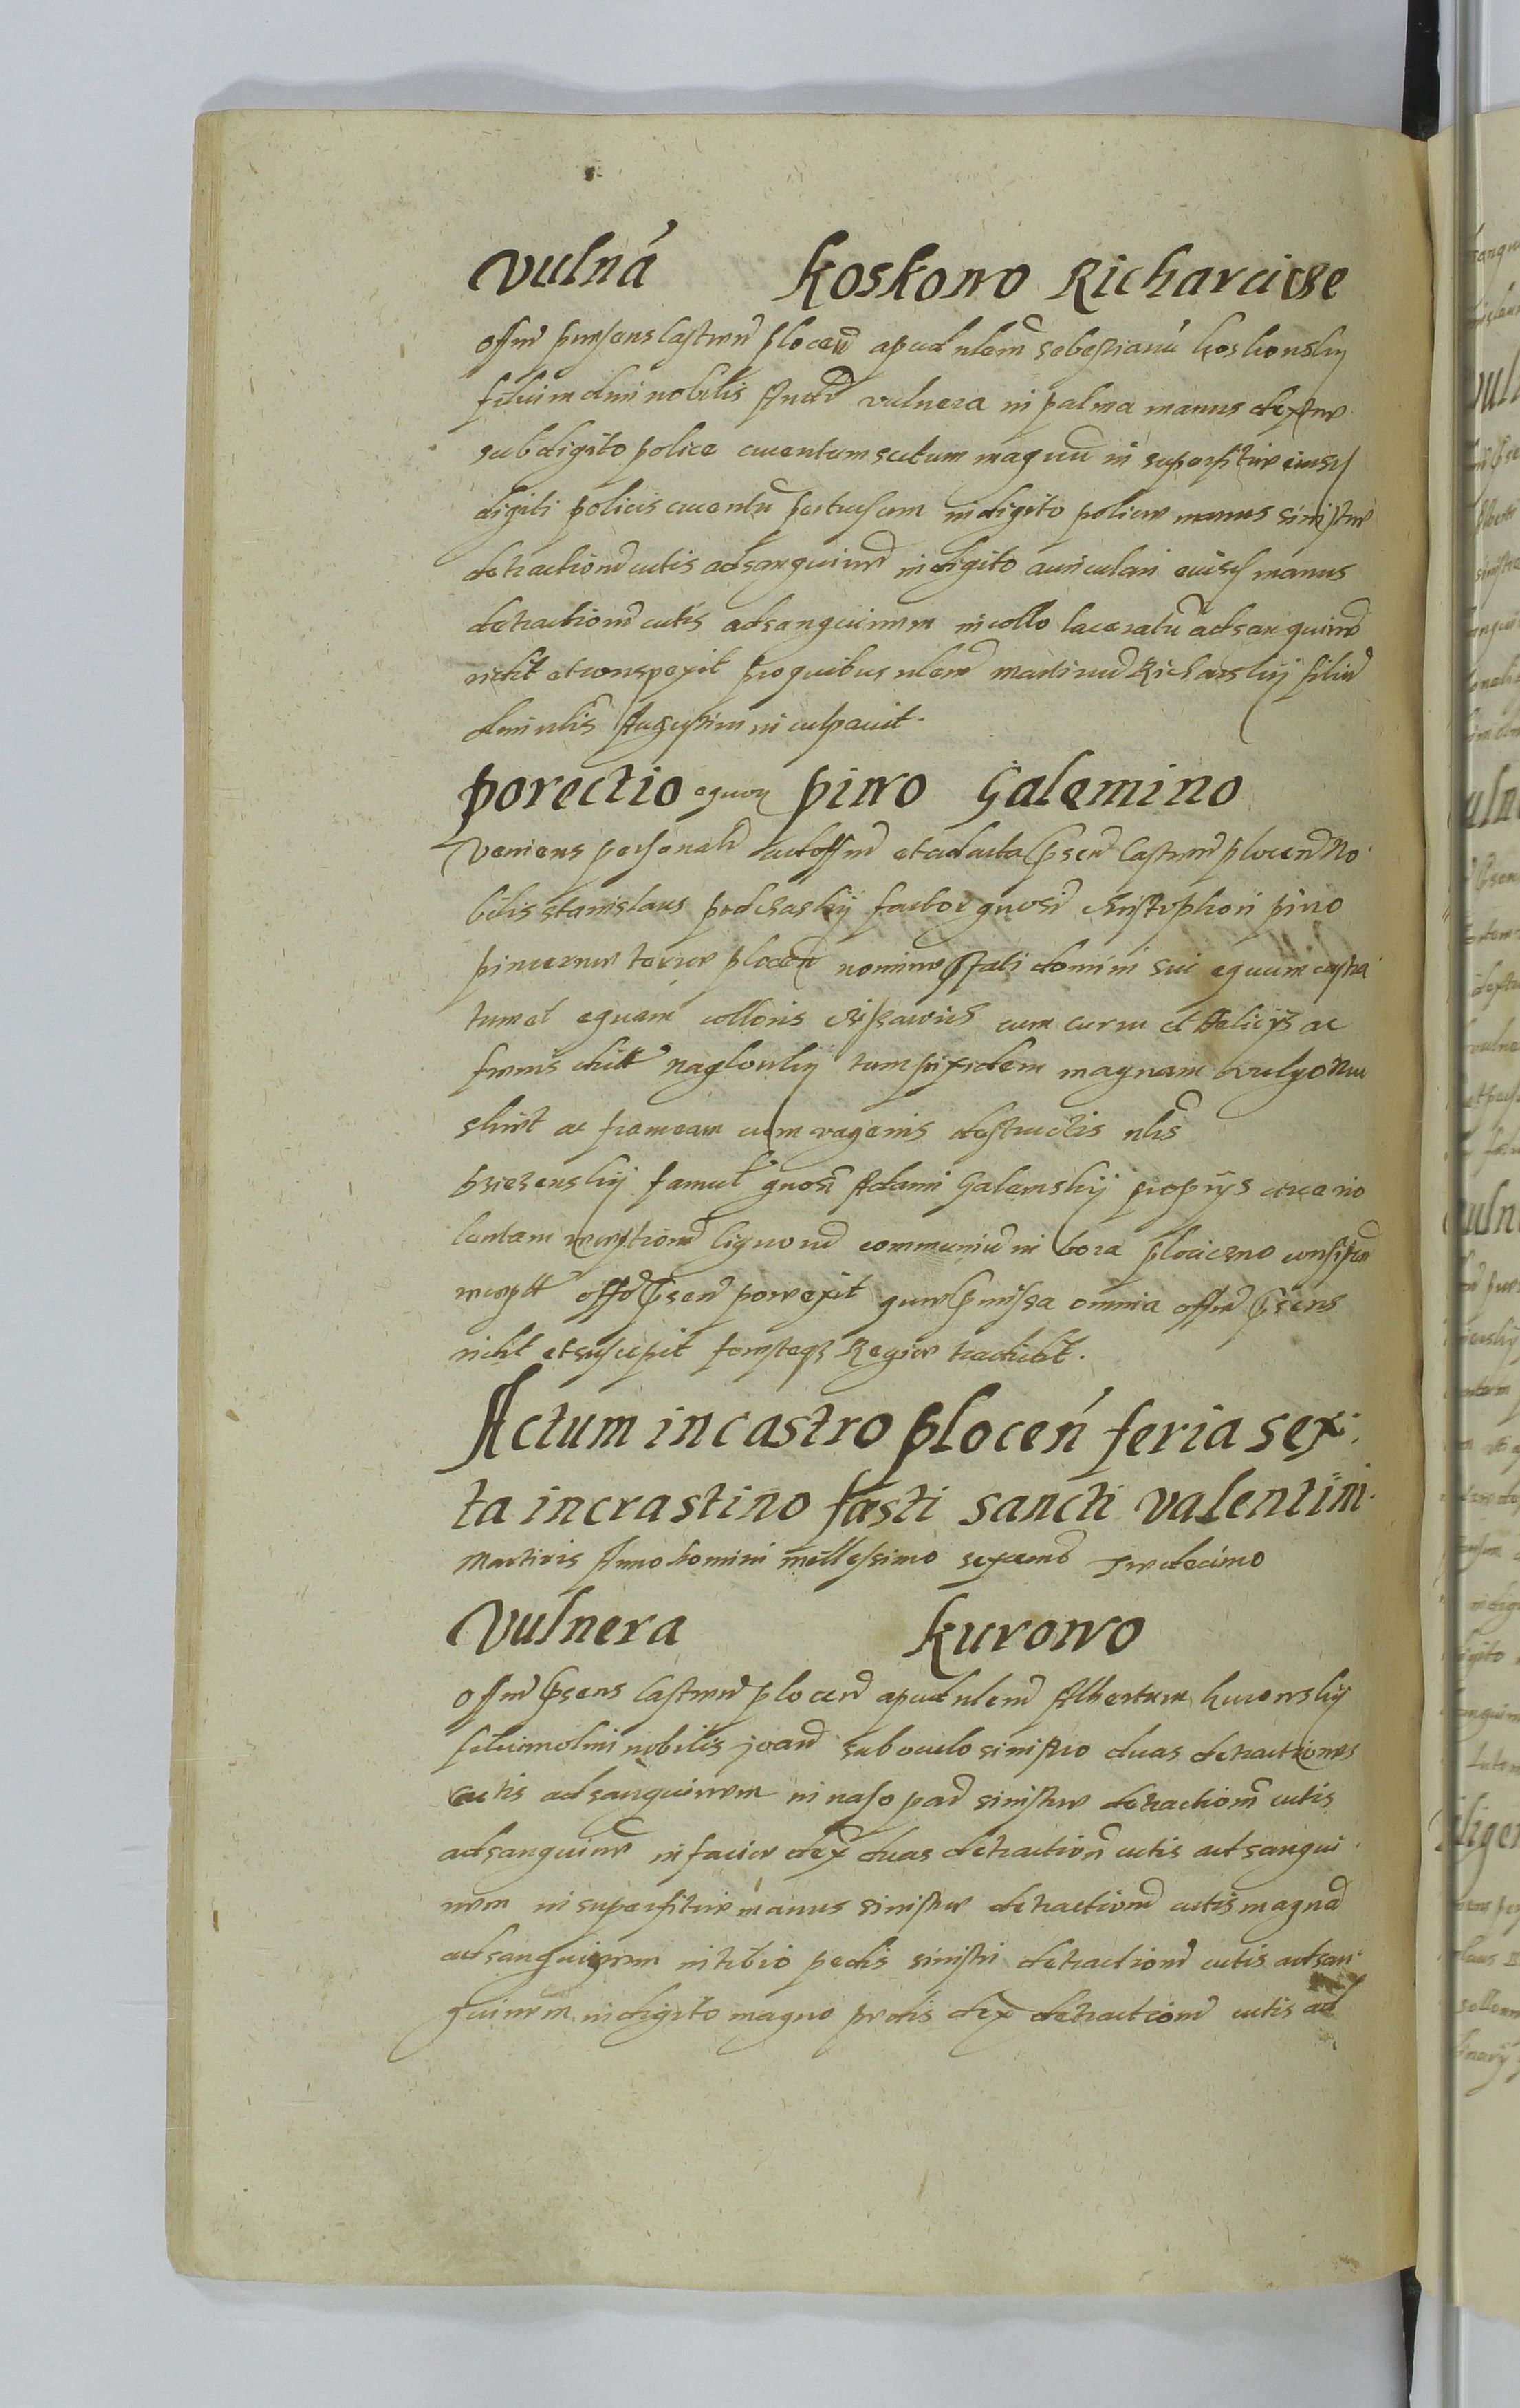 Vulná Koskowo Richarcicze
Offm̃ prẽsens Castren̄ plocen̄ apud nlem̄ Sebestianū koskowskij
filium dmi nobilis Andr̄ vulnera in palma manus dextre
sub digito police cruentum scutum magnū in superfitie eiusd
digiti policis cruentū pertusum in digito police manus sinistre
detractionē cutis ad sanguinē in digito auriculari eiusd manus
detractionē cutis ad sanguinem in collo laceratū ad sanguinē
vidit et conspexit pro quibus nlem̄ Martinū Richarskij filiū
dmi nlis Augustini inculpavit.
Porectio equorȝ Piwo Galemino
Veniens personalr̄ ad offm̄ et ad acta psen̄ Castren̄ plocen̄ No
bilis Stanislaus factor gnosi Christophori piwo
pincerne terre plocen̄ nomine pfati domini sui equum castra
tum et equam colloris cum curru et ac
frenis naglowkij tum pixidem magnam vulgo
ac frameam cum vagenis nlis
famul̄ gnosi Adami Galemskij propijs
lignorū communiū in bora
offo psen̄ porrexit que pmissa omnia offm̄ psens
vidit et suscepit Regie tradidit.
Actum in castro plocen̄ feria sex
ta in crastino fæsti sancti Valentini
Martiris Anno domini millessimo sexcentō tredecimo
Vulnera Kurowo
Offm̄ psens Castren̄ plocen̄ apud nlem̄ Albertum kurowskij
filium dmi nobilis joan̄ sub oculo sinistro duas detractiones
cutis ad sanguinem in naso par̄ sinistre detractionē cutis
ad sanguinē in facie dex duas detraction̄ cutis ad sangui
nem in superfitie manus sinistre detractionē cutis magnā
ad sanguinem in tibio pedis sinistri detractionē cutis ad san
guinem in digito magno pedis dex detractionē cutis ad